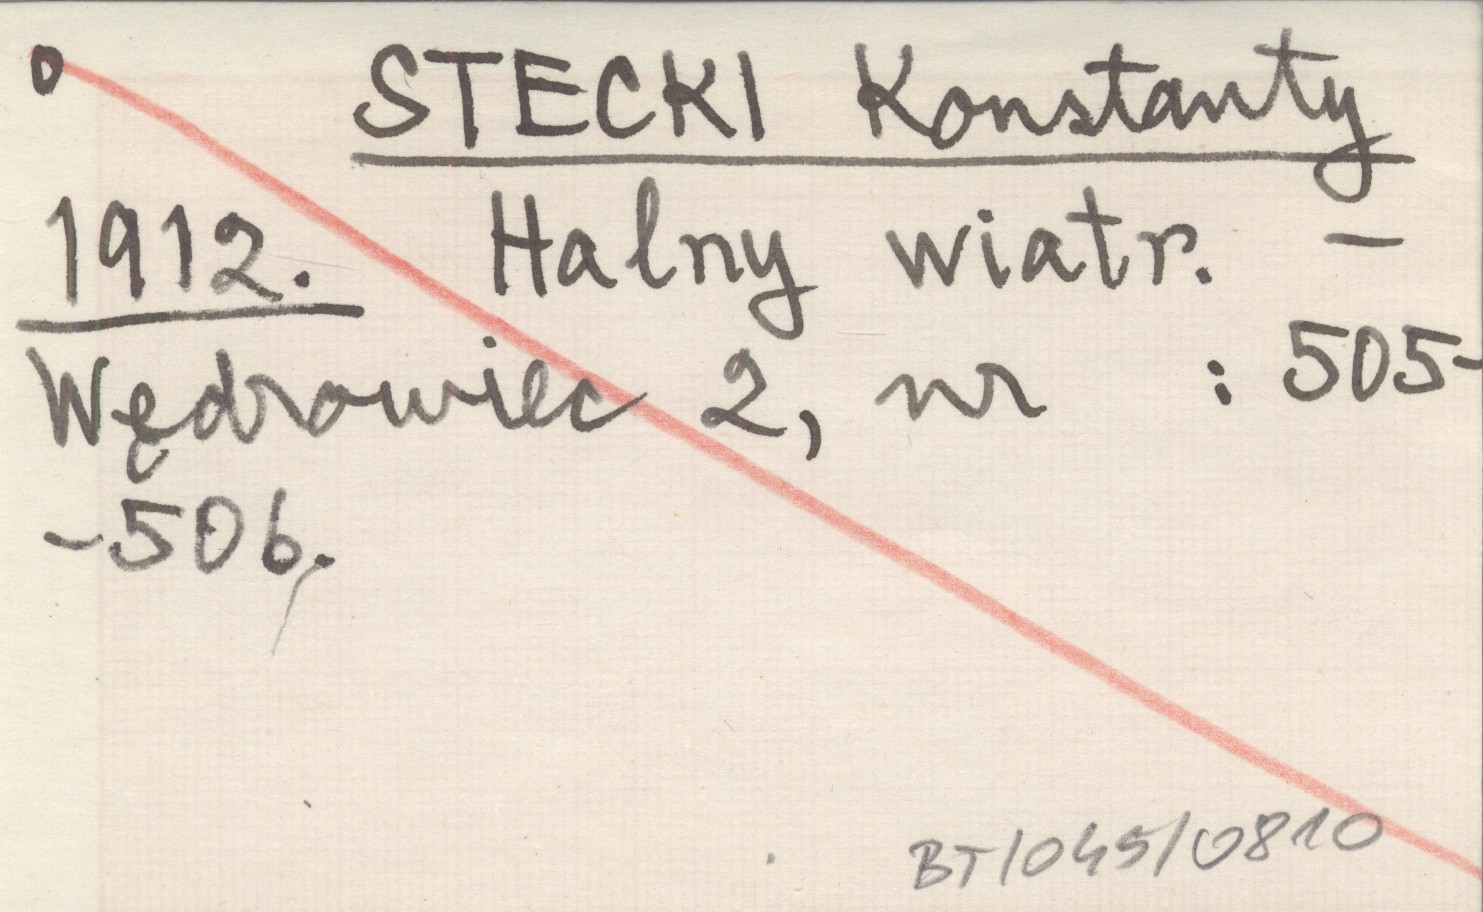 0 STECKI Konstanty
1912. Halny wiatr. -
Wędrowiec 2, nr : 505-
-506.
BT/045/0810